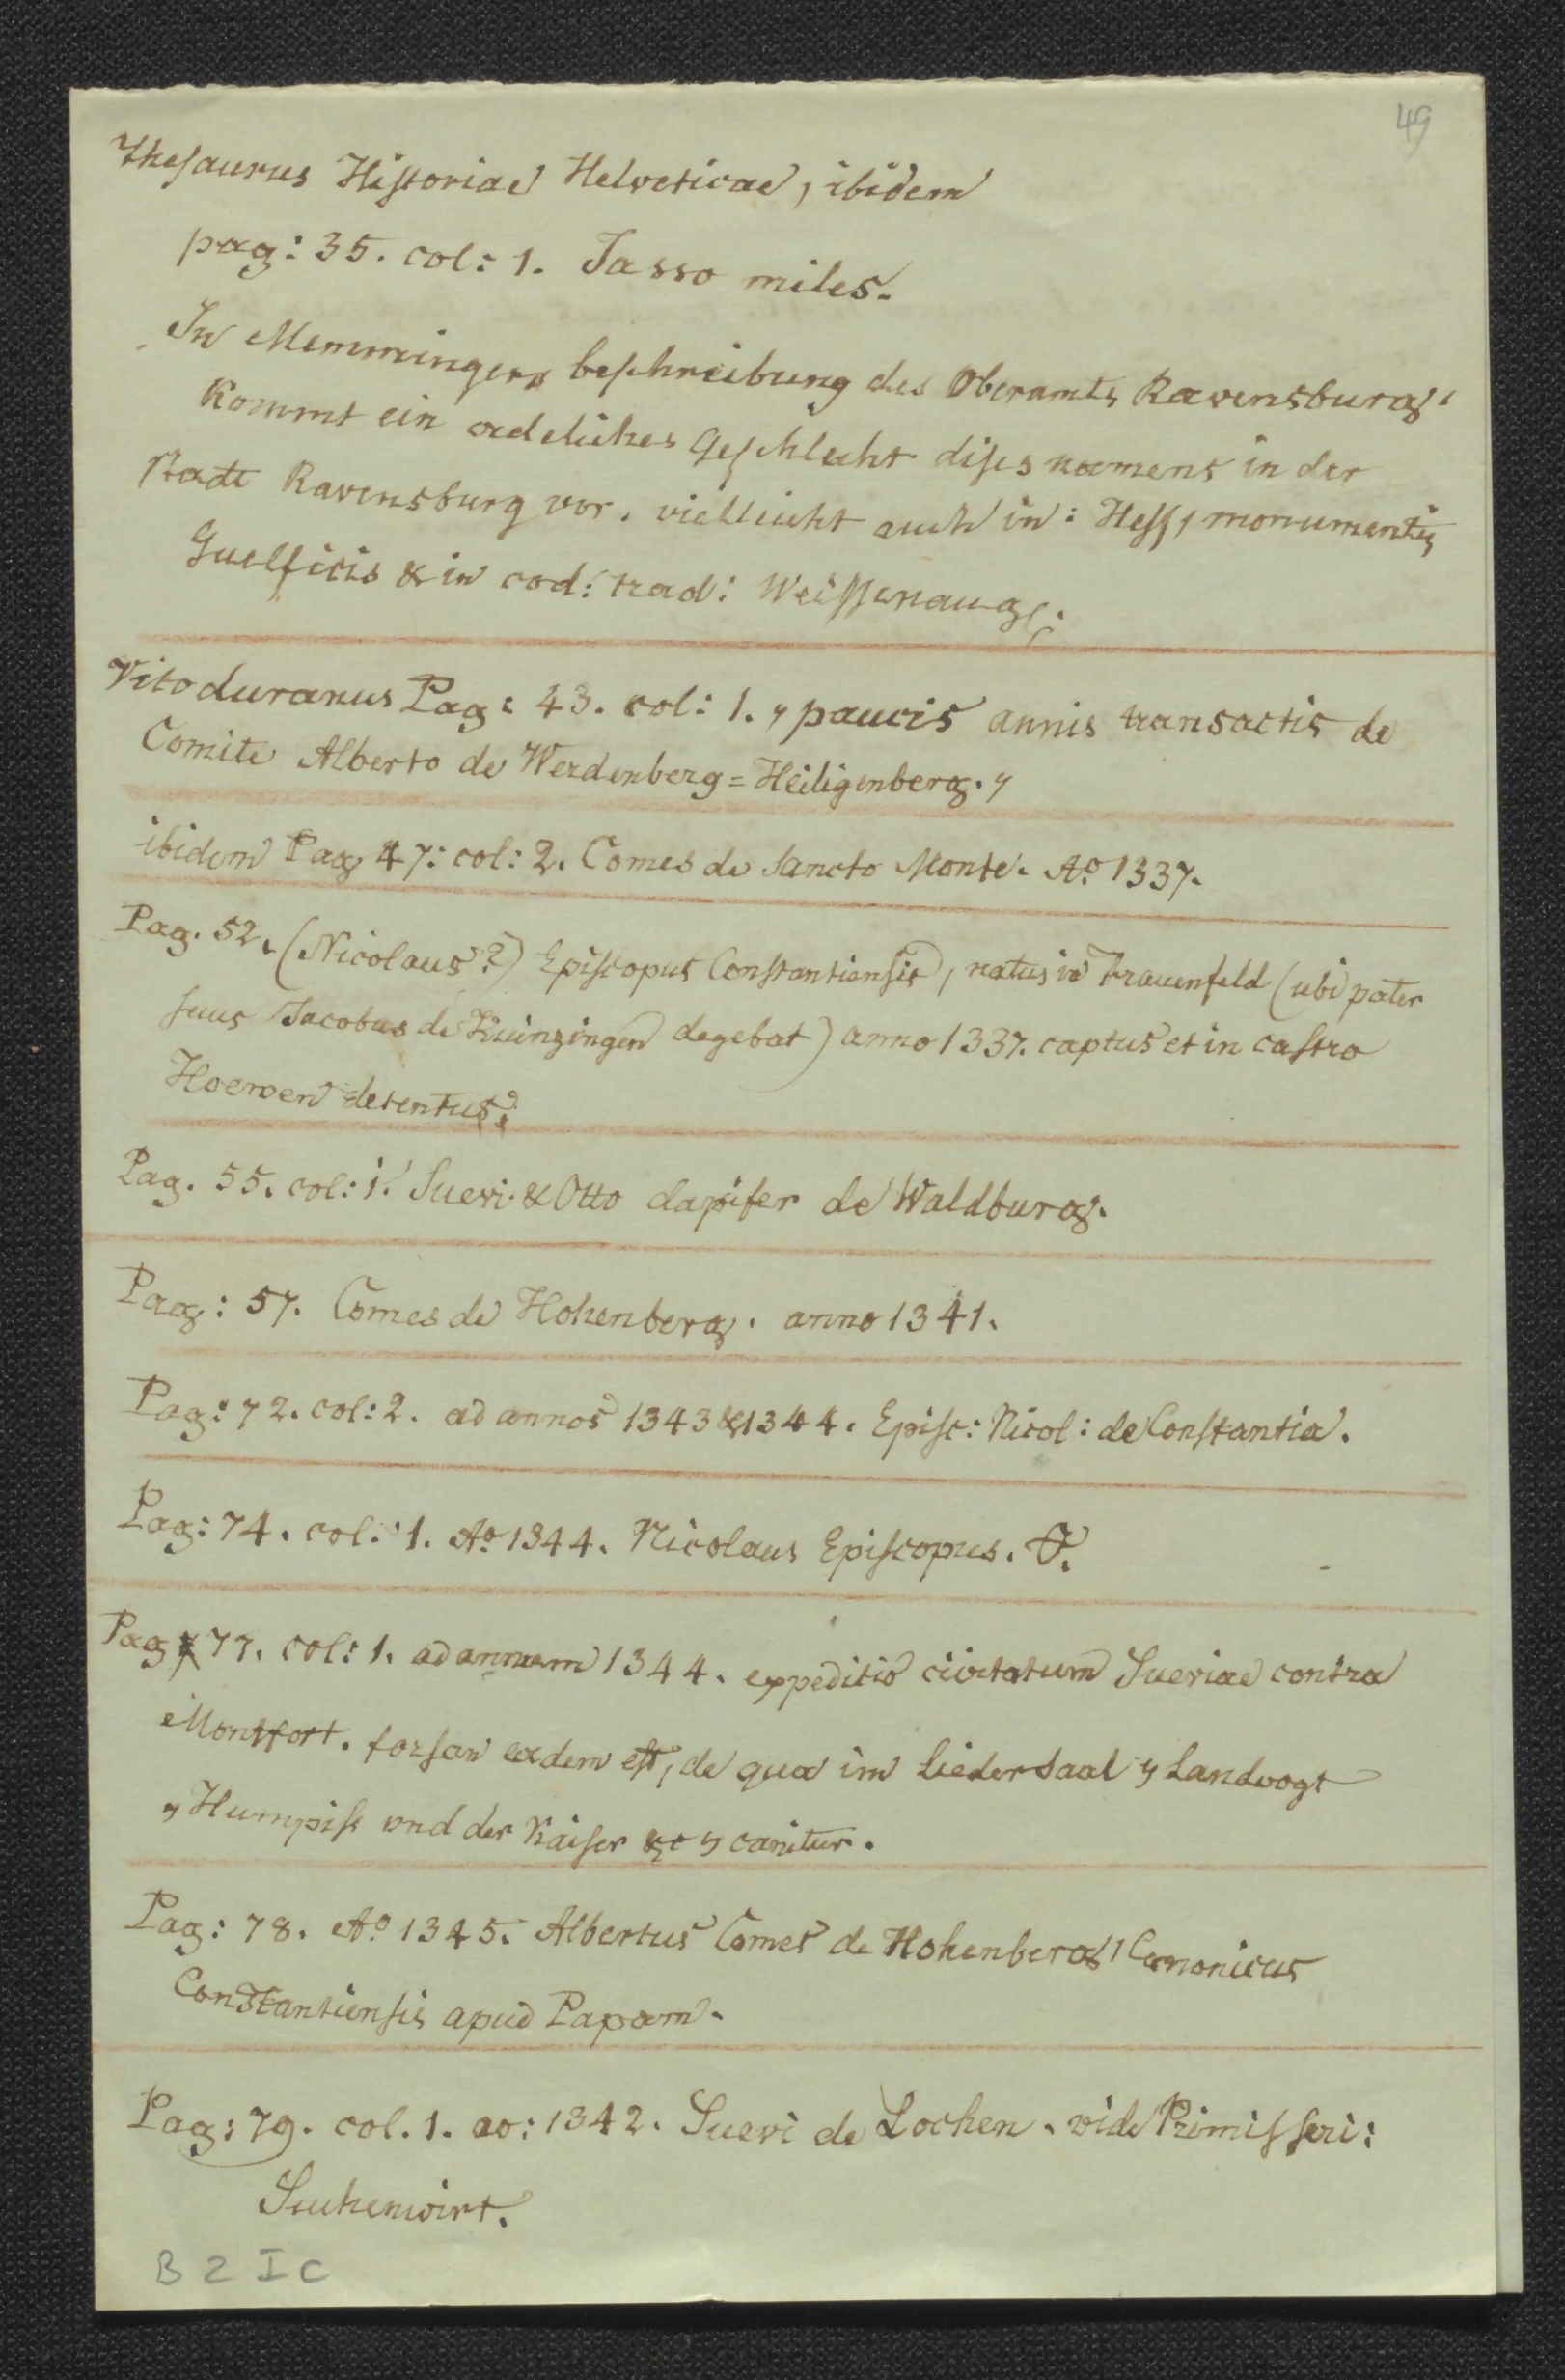 49
Thesaurus Historiae Helveticae, ibidem
pag: 35. col: 1. Tasso miles.
In Memmingers beschreibung des Oberamts Ravensburg,
kommt ein adeliches Geschlecht dises namens in der
stadt Ravensburg vor. vielleicht auch in: Hess, monumentis
Guelficis & in cod: trad: Weissenaug:.
Vitoduranus Pag: 43. col: 1. „ paucis annis transactis de
Comite Alberto de Werdenberg=Heiligenberg. „
ibidem Pag 47: col: 2. Comes de Sancto Monte. Ao. 1337.
Pag. 52. (Nicolaus?) Episcopus Constantiensis, natus in Frauenfeld (ubi pater
suus Jacobus de degebat) anno 1337. captus et in castro
Hoewen detentus.
Pag. 55. col: 1. Suevi. & Otto dapifer de Waldburg.
Pag: 57. Comes de Hohenberg. anno 1341.
Pag: 72. col: 2. ad annos 1343 & 1344. Episc: Nicol: de Constantia.
Pag: 74. col: 1. Ao. 1344. Nicolaus Episcopus.
Pag 77. col: 1. ad annum 1344. expeditio civitatum Sueviae contra
Montfort. forsan eadem est, de qua im Liedersaal „ Landvogt
„ Humpiss und der Kaiser &c „ canitur.
Pag: 78. Ao. 1345. Albertus Comes de Hohenberg, Canonicus
Constantiensis apud Papam.
Pag: 79. col. 1. ao: 1342. Suevi de Lochen. vide Primisseri:
Suchenwirt.
B 2 I c